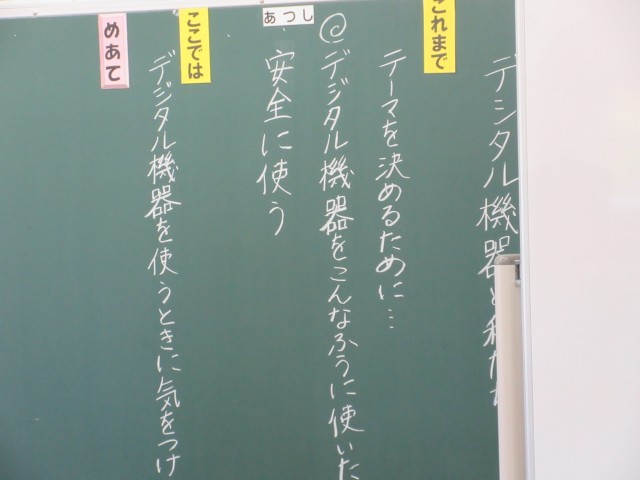 デジタル機器と私たち
これまで
テーマを決めるために…
デジタル機器をこんなふうに使いた
あつし
・安全に使う
ここでは
デジタル機器を使うときに気をつけ
めあて